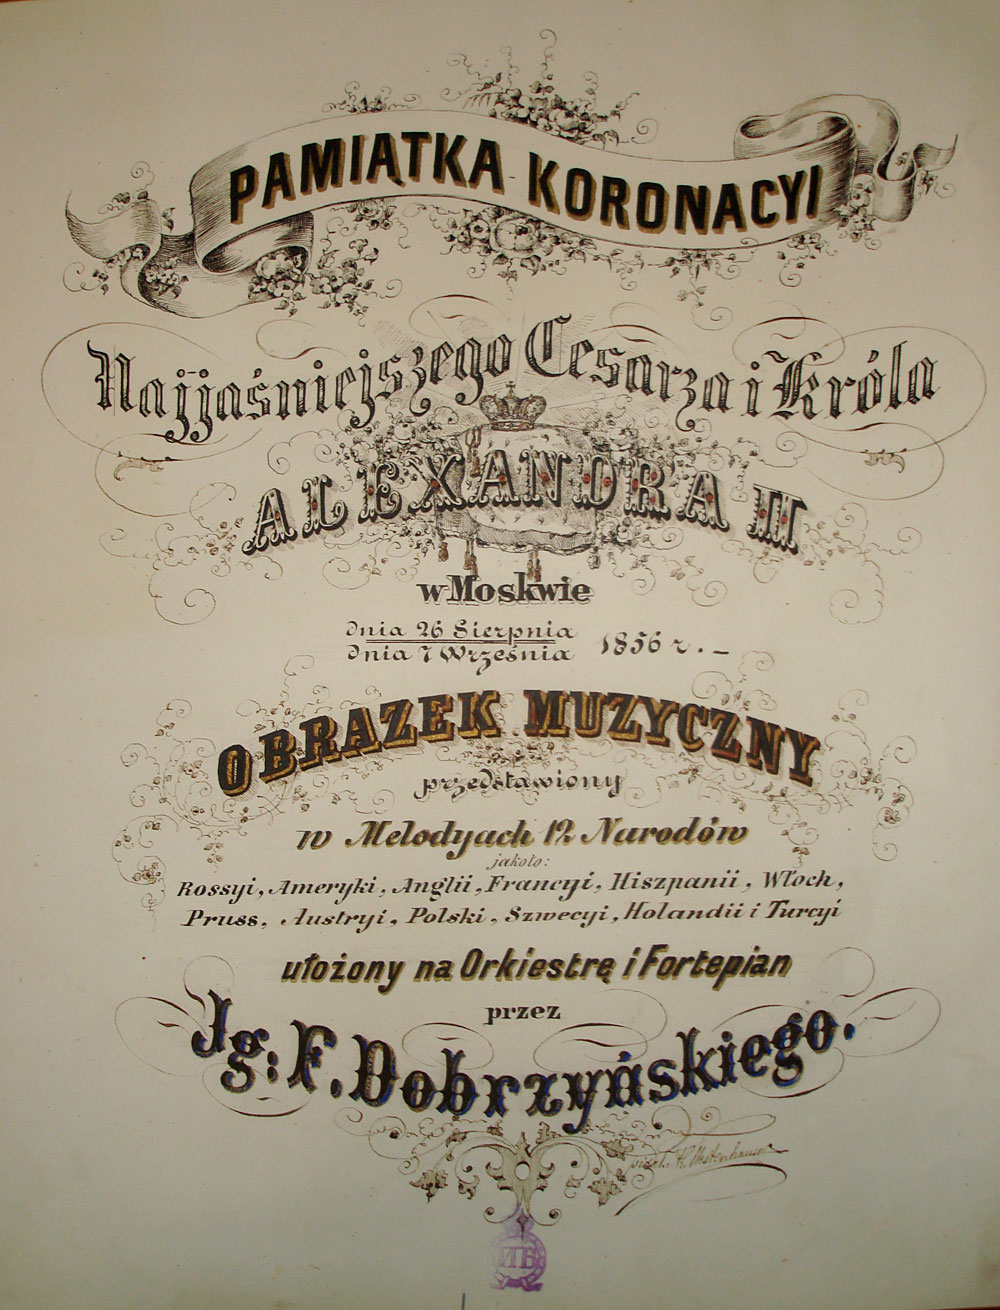 PAMIĄTKA KORONACYI
Najjaśniejszego Cesarza i Króla
ALEXANDRA II
w Moskwie
dnia 26 Sierpnia
dnia 7 Września 1856 r. _
OBRAZEK MUZYCZNY
przedstawiony
w Melodyach 12 Narodów
jakoto:
Rossyi, Ameryki, Anglii, Francyi, Hiszpanii, Włoch,
Pruss, Austryi, Polski, Szwecyi, Holandii i Turcyi
ułożony na Orkiestrę i Fortepian
przez
Jg: F. Dobrzyńskiego.
ИБ